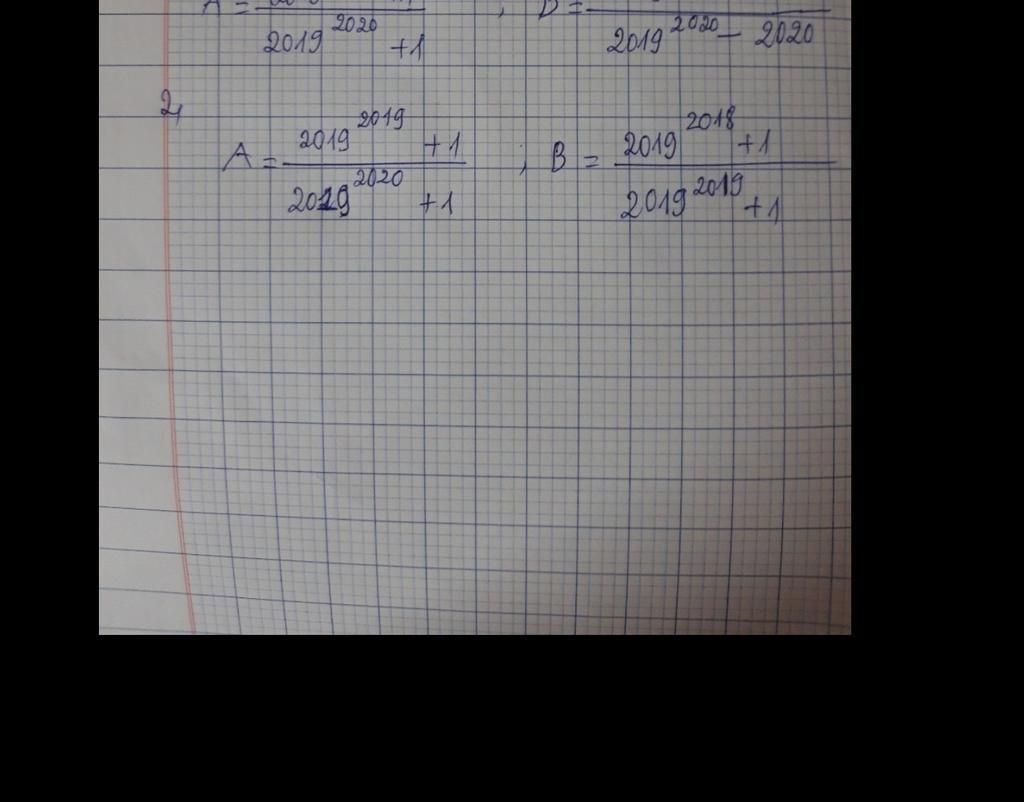 A = ; B =
2019^2020 + 1 2019^2020 - 2020
2,
A = (2019^2019 + 1) / (2019^2020 + 1) ; B = (2019^2018 + 1) / (2019^2019 + 1)